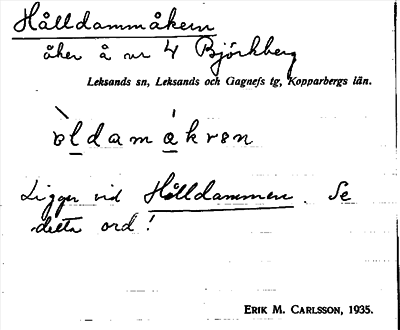 Hålldammåkern
åker å nr 4 Björkberg
Leksands sn, Leksands och Gagnefs tg, Kopparbergs län.
òldamákrən
Ligger vid Hålldammen. Se
detta ord!
ERIK M. CARLSSON, 1935.